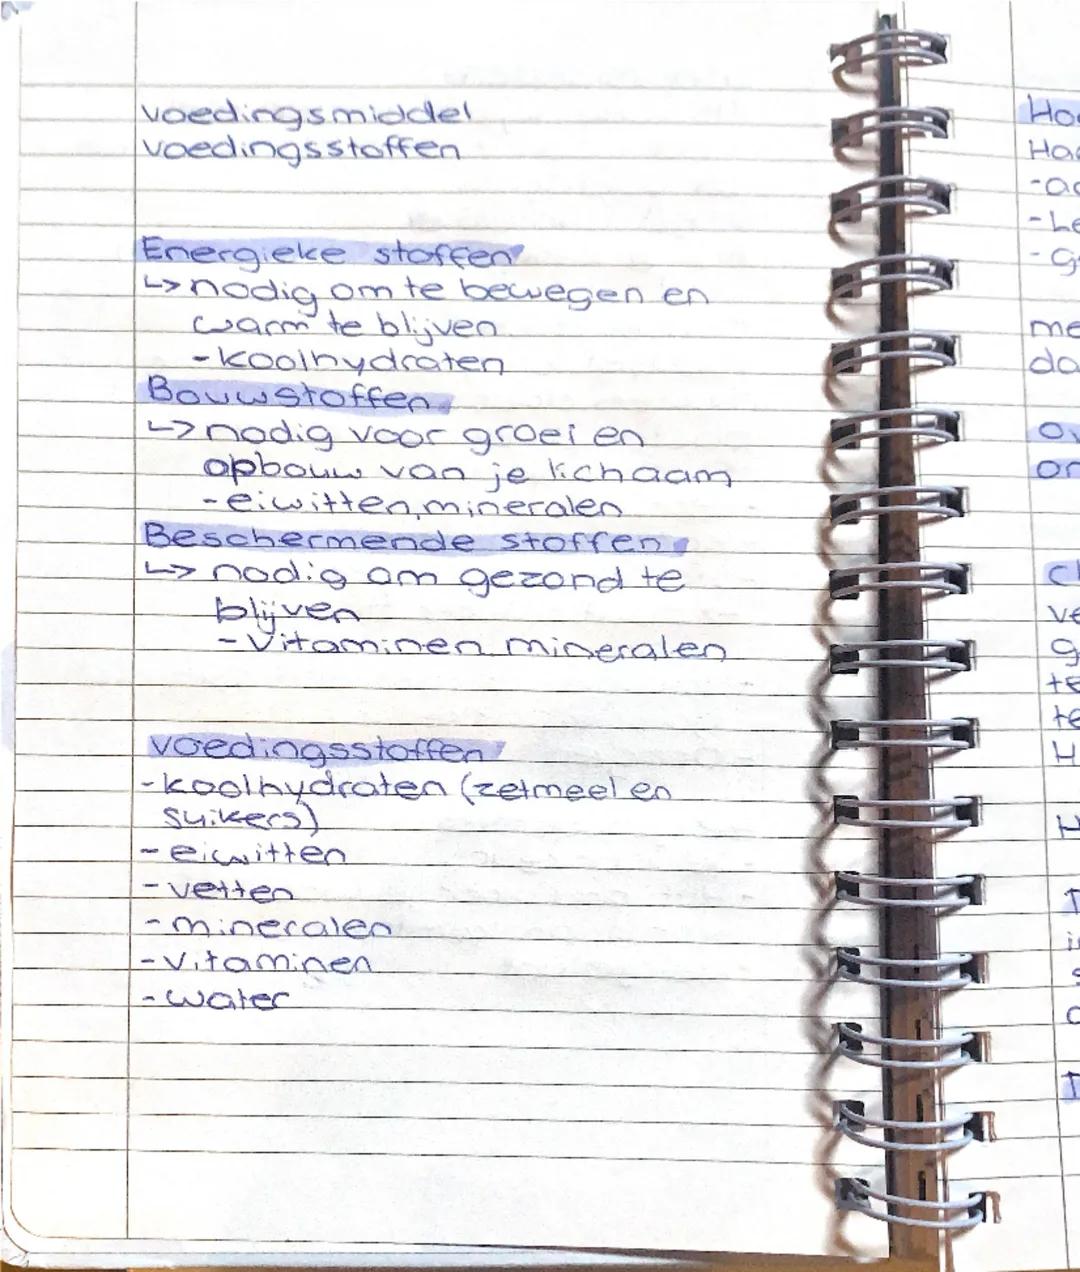 voedingsmiddel
voedingsstoffen
Energieke stoffen
↳ nodig om te bewegen en
warm te blijven
- koolhydraten
Bouwstoffen
↳ nodig voor groei en
opbouw van je lichaam
- eiwitten, mineralen
Beschermende stoffen
↳ nodig om gezond te
blijven
- Vitaminen mineralen
voedingsstoffen
- koolhydraten (zetmeel en
suikers)
- eiwitten
- vetten
- mineralen
- vitaminen
- water